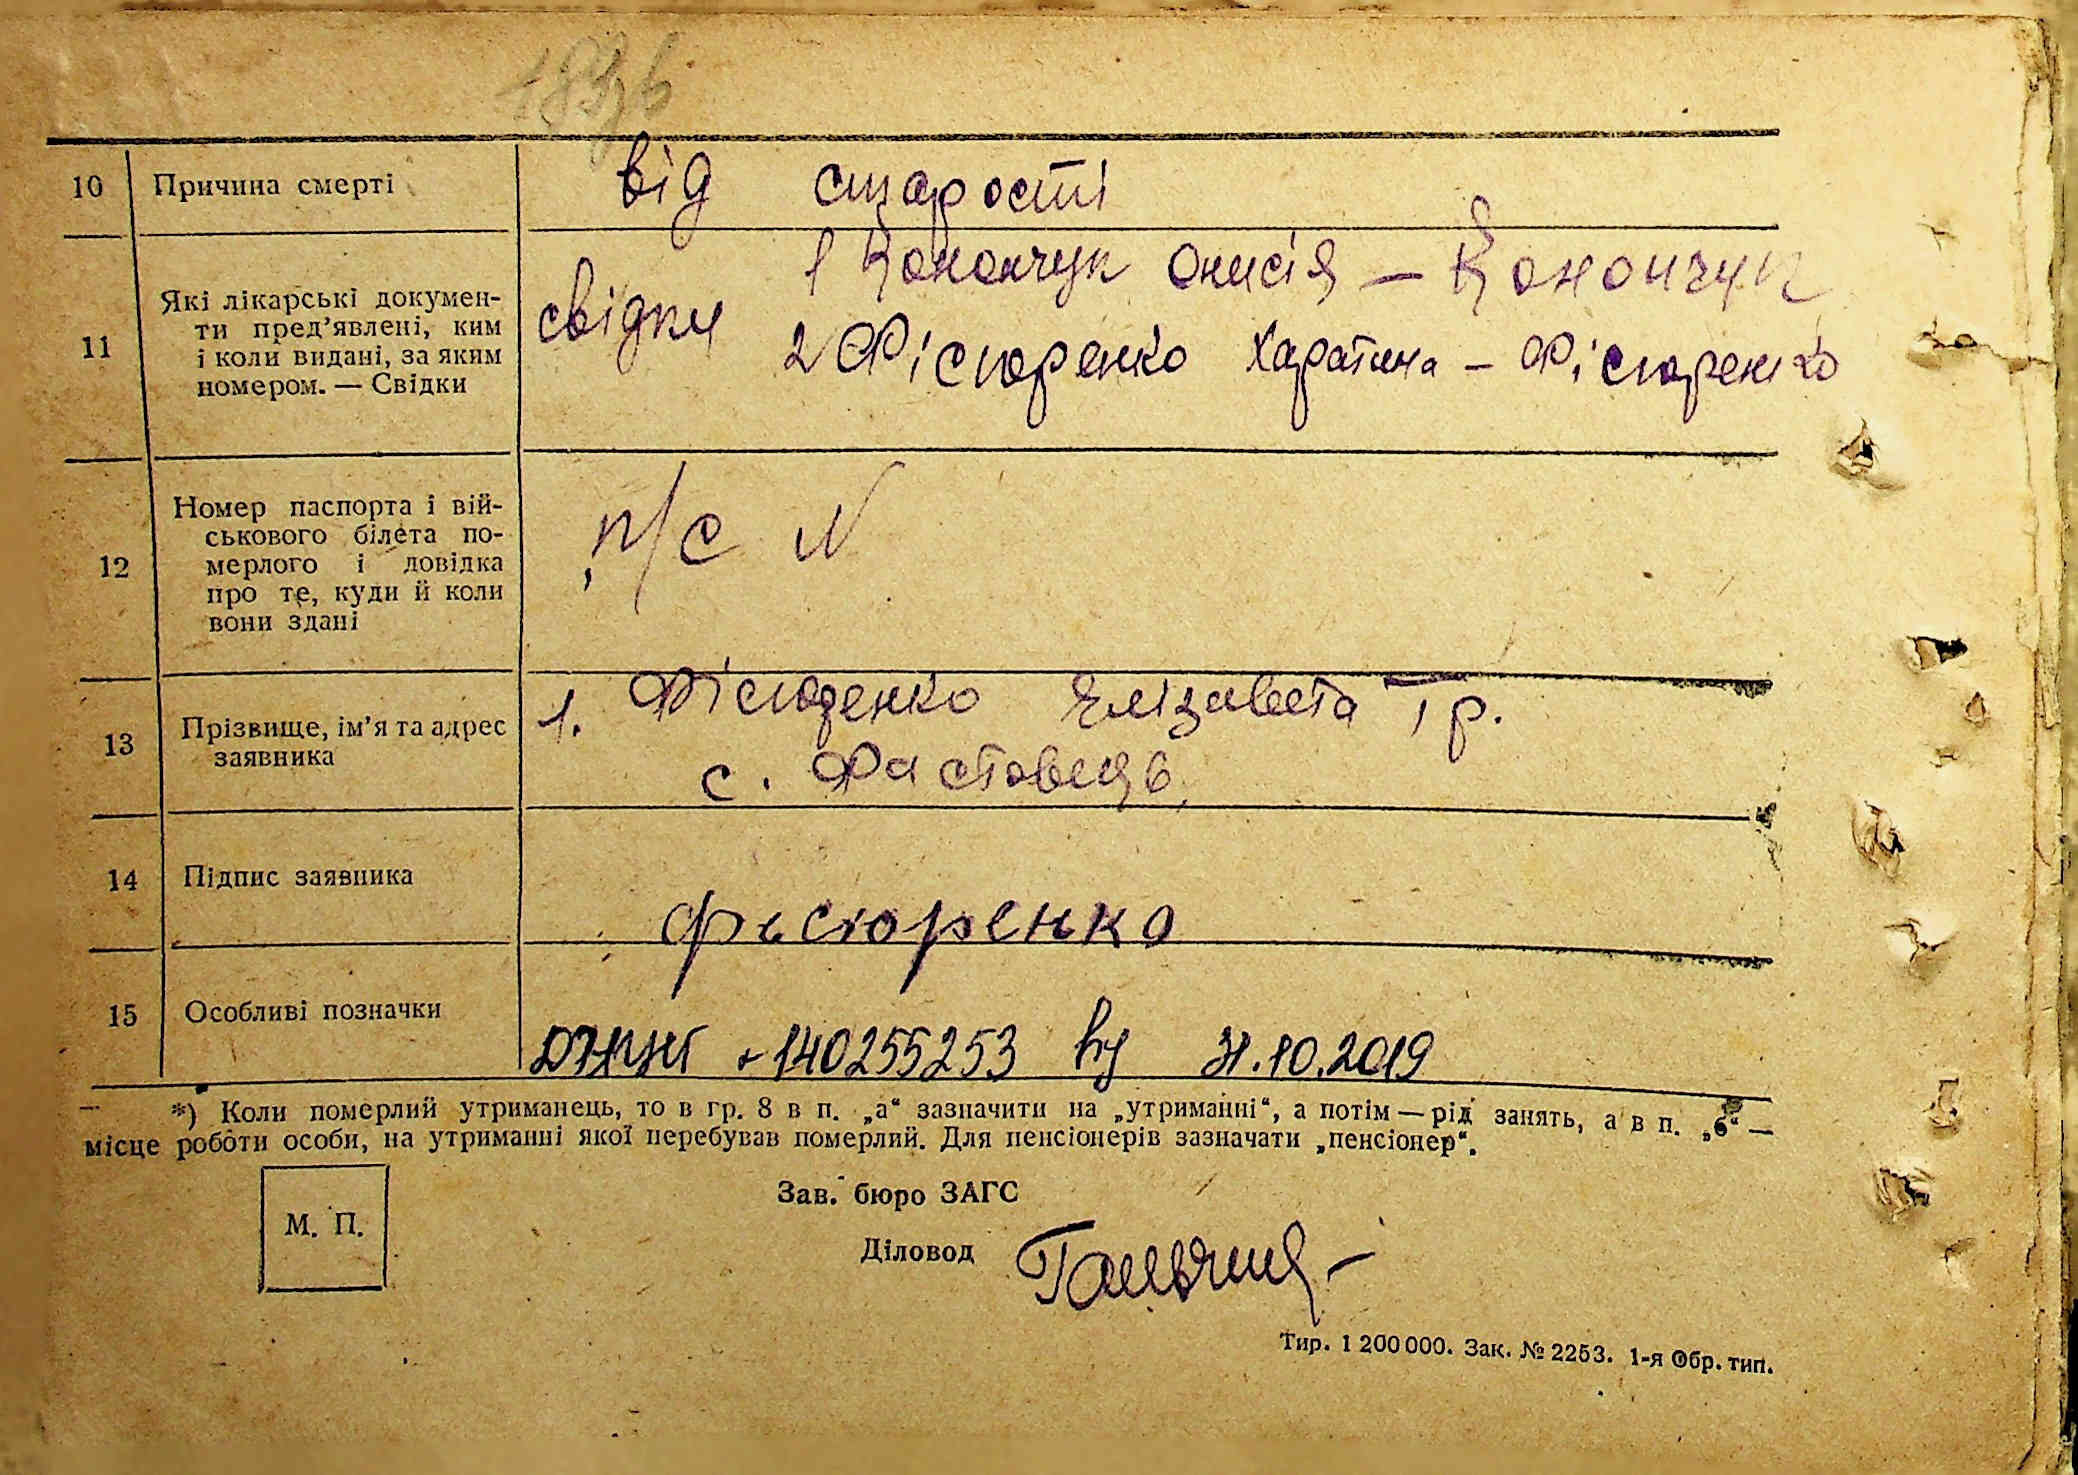 10 Причина смерті від старості
свідки 1 Конончук Онисія – Конончук
11 Які лікарські докумен-
ти пред’явлені, ким
і коли видані, за яким
номером. — Свідки
2 Фісюренко Харатина – Фісюренко
12 Номер паспорта і вій-
ськового білета по-
мерлого і довідка
про те, куди й коли
вони здані
п/с N
13 Прізвище, ім’я та адрес
заявника
1. Фісюренко Єлізавета Гр.
с. Фастовець
14 Підпис заявника
Фісюренко
15 Особливі позначки
140255253 31.10.2019
*) Коли померлий утриманець, то в гр. 8 в п. „а“ зазначити на „утриманні“, а потім — рід занять, а в п. „б“ —
місце роботи особи, на утриманні якої перебував померлий. Для пенсіонерів зазначати „пенсіонер“.
М. П.
Зав. бюро ЗАГС
Діловод
Тир. 1 200 000. Зак. № 2253. 1-я Обр. тип.